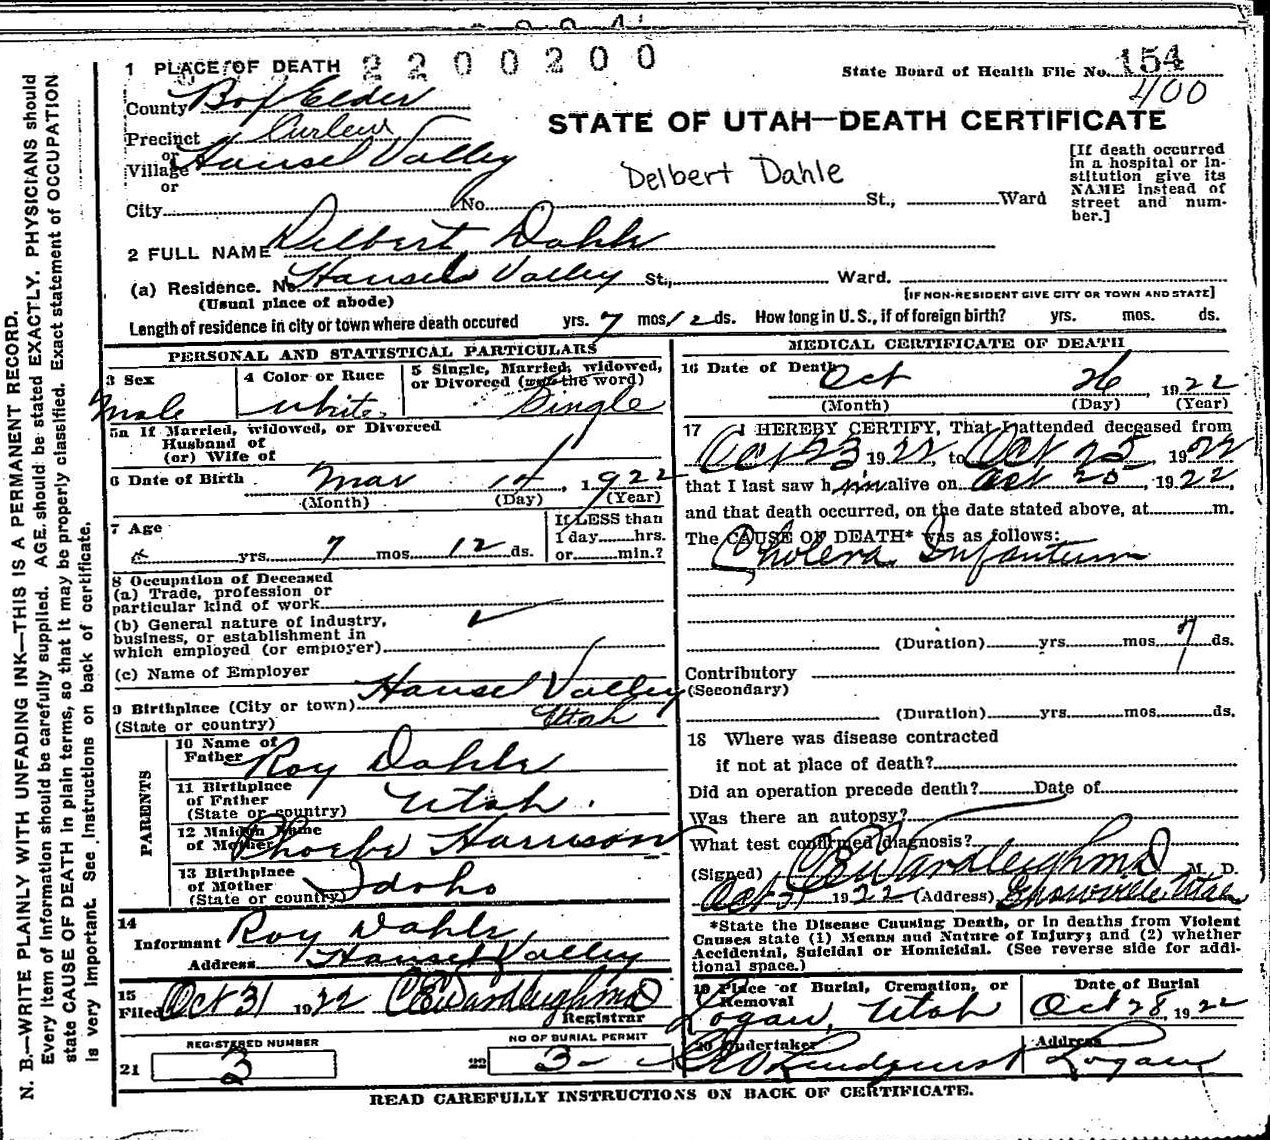 1 PLACE OF DEATH 2200200
State Board of Health File No. 154
400
County Box Elder
Precinct Curlew
or
Village Hansel Valley
or
City No. St., Ward
STATE OF UTAH—DEATH CERTIFICATE
Delbert Dahle
[If death occurred
in a hospital or in-
stitution give its
NAME instead of
street and num-
ber.]
2 FULL NAME Delbert Dahle
(a) Residence. No. Hansel Valley St., Ward.
(Usual place of abode)
[IF NON-RESIDENT GIVE CITY OR TOWN AND STATE]
Length of residence in city or town where death occured yrs. 7 mos. 12 ds. How long in U. S., if of foreign birth? yrs. mos. ds.
PERSONAL AND STATISTICAL PARTICULARS
3 Sex
Male
4 Color or Race
White
5 Single, Married, widowed,
or Divorced (write the word)
Single
5a If Married, widowed, or Divorced
Husband of
(or) Wife of
6 Date of Birth Mar 14, 1922
(Month) (Day) (Year)
7 Age
yrs. 7 mos. 12 ds.
If LESS than
1 day hrs.
or min.?
8 Occupation of Deceased
(a) Trade, profession or
particular kind of work
(b) General nature of industry,
business, or establishment in
which employed (or employer)
(c) Name of Employer
9 Birthplace (City or town) Hansel Valley
(State or country) Utah
PARENTS
10 Name of
Father Roy Dahle
11 Birthplace
of Father
(State or country) Utah.
12 Maiden Name
of Mother Phoebe Harrison
13 Birthplace
of Mother
(State or country) Idaho
14
Informant Roy Dahle
Address Hansel Valley
15
Filed Oct 31 1922 CE Wardleigh md
Registrar
REGISTERED NUMBER
21 3
NO OF BURIAL PERMIT
22 3
MEDICAL CERTIFICATE OF DEATH
16 Date of Death Oct 26 1922
(Month) (Day) (Year)
17 I HEREBY CERTIFY, That I attended deceased from
Oct 23 1922, to Oct 25, 1922
that I last saw him alive on Oct 25, 1922,
and that death occurred, on the date stated above, at m.
The CAUSE OF DEATH* was as follows:
Cholera Infantum
(Duration) yrs. mos. 7 ds.
Contributory
(Secondary)
(Duration) yrs. mos. ds.
18 Where was disease contracted
if not at place of death?
Did an operation precede death? Date of
Was there an autopsy?
What test confirmed diagnosis?
(Signed) CE Wardleigh md M. D.
Oct 31 1922 (Address) Snowville Utah
*State the Disease Causing Death, or in deaths from Violent
Causes state (1) Means and Nature of Injury; and (2) whether
Accidental, Suicidal or Homicidal. (See reverse side for addi-
tional space.)
19 Place of Burial, Cremation, or
Removal
Logan, Utah
Date of Burial
Oct 28, 1922
20 Undertaker
Address
Logan
READ CAREFULLY INSTRUCTIONS ON BACK OF CERTIFICATE.
N. B.—WRITE PLAINLY WITH UNFADING INK—THIS IS A PERMANENT RECORD.
Every item of information should be carefully supplied. AGE should be stated EXACTLY. PHYSICIANS should
state CAUSE OF DEATH in plain terms, so that it may be properly classified. Exact statement of OCCUPATION
is very important. See Instructions on back of certificate.